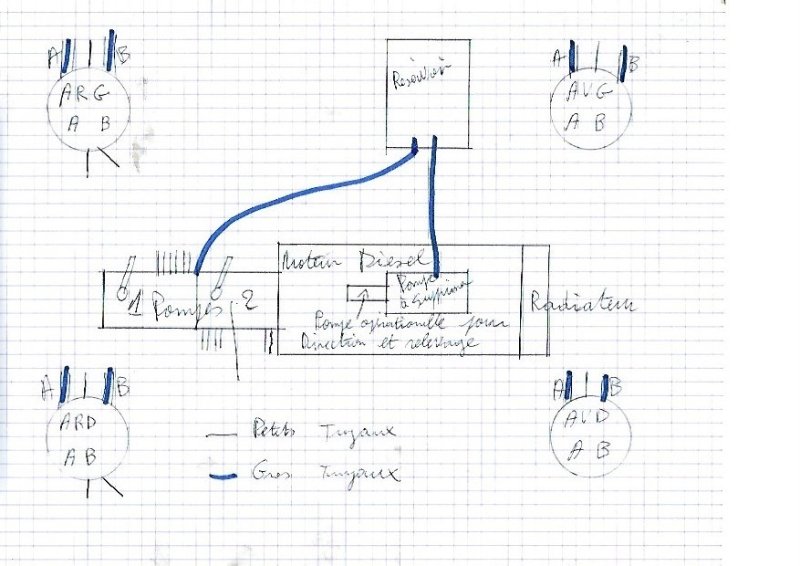 A B
ARG
A B
Réservoir
A B
AVG
A B
Moteur Diesel
1 Pompes 2
Pompe
à supprimer
Radiateur
Pompe pour
Direction et relevage
A B
ARD
A B
A B
AVD
A B
Petits Tuyaux
Gros Tuyaux